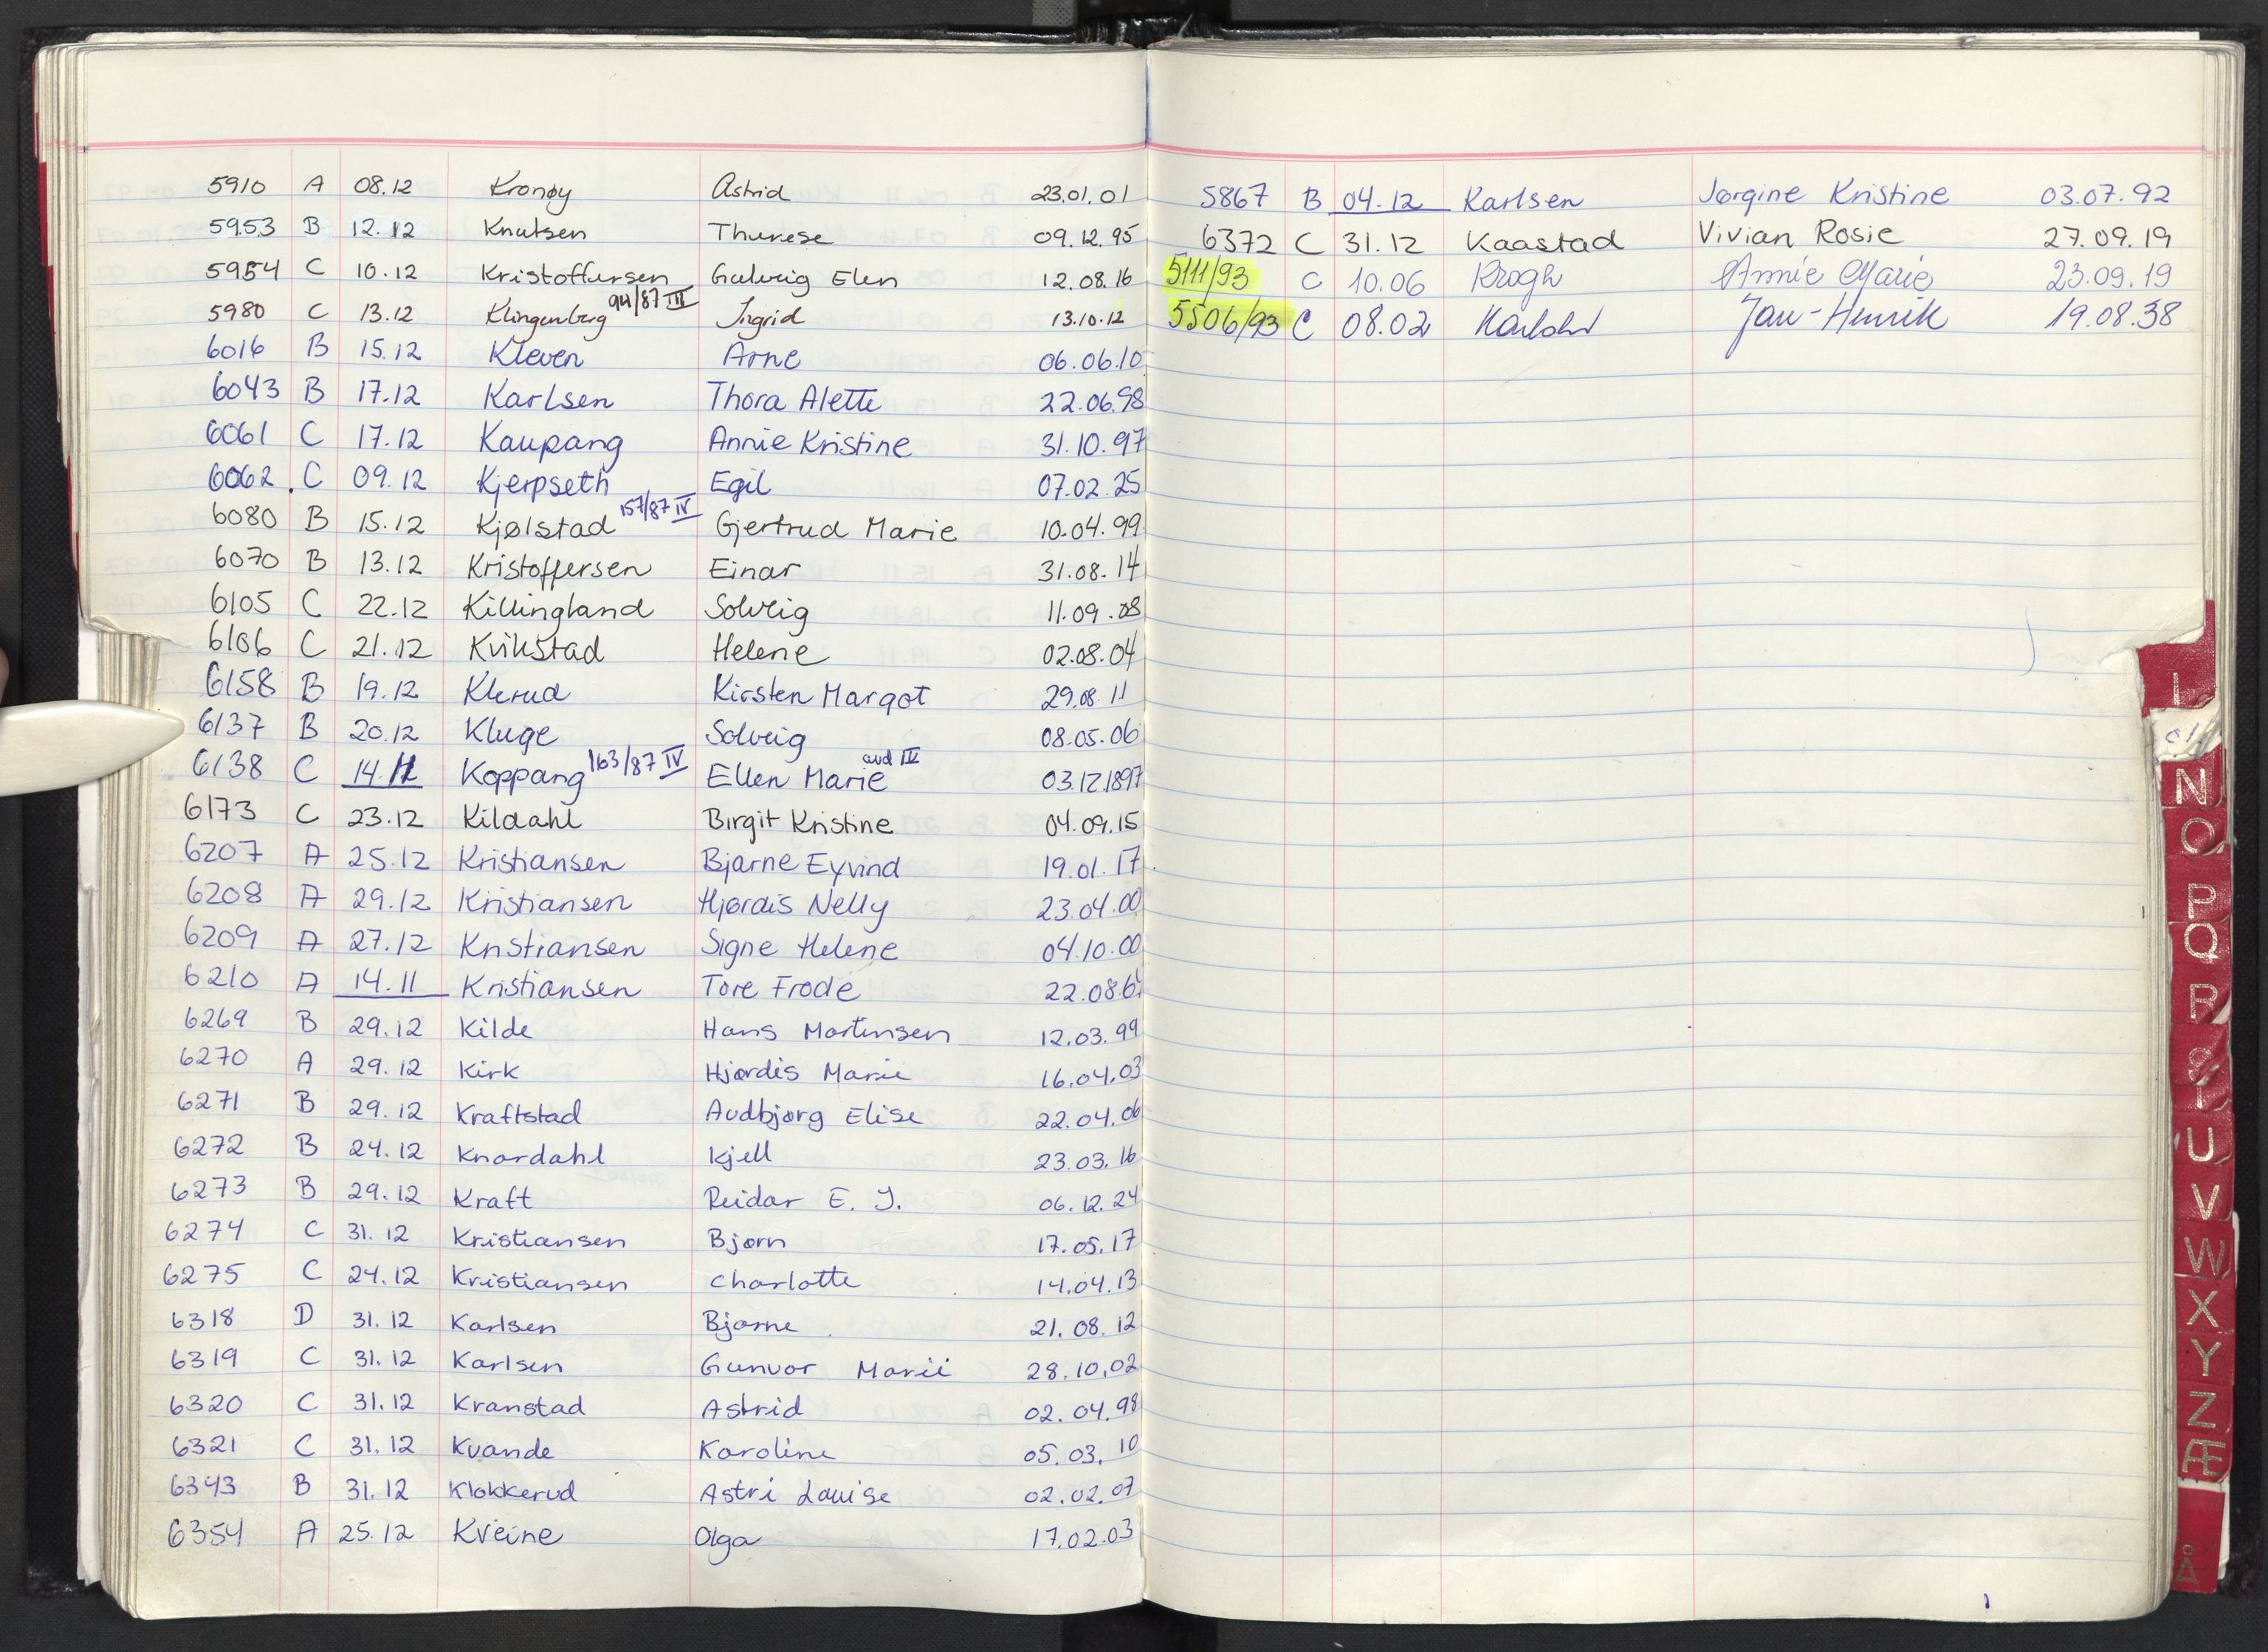 5910 A 08.12 Kronøy Astrid 23.01.01
5953 B 12.12 Knutsen Therese 09.12.95
5954 C 10.12 Kristoffersen Elen 12.08.16
5980 C 13.12 Klingenberg 94/87 III Ingrid 13.10.12
6016 B 15.12 Kleven Arne 06.06.10
6043 B 17.12 Karlsen Thora Alette 22.06.98
6061 C 17.12 Kaupang Annie Kristine 31.10.97
6062 C 09.12 Kjerpseth Egil 07.02.25
6080 B 15.12 Kjølstad 157/87 IV Gjertrud Marie 10.04.99
6070 B 13.12 Kristoffersen Einar 31.08.14
6105 C 22.12 Killingland Solveig 11.09.08
6106 C 21.12 Kvikstad Helene 02.08.04
6158 B 19.12 Klerud Kirsten Margot 29.08.11
6137 B 20.12 Kluge Solveig 08.05.06
6138 C 14.11 Koppang 163/87 IV Ellen Marie avd IV 03.12.1897
6173 C 23.12 Kildahl Birgit Kristine 04.09.15
6207 A 25.12 Kristiansen Bjarne Eyvind 19.01.17
6208 A 29.12 Kristiansen Hjørdis Nelly 23.04.00
6209 A 27.12 Kristiansen Signe Helene 04.10.00
6210 A 14.11 Kristiansen Tore Frode 22.08.64
6269 B 29.12 Kilde Hans Martinsen 12.03.99
6270 A 29.12 Kirk Hjørdis Marie 16.04.03
6271 B 29.12 Kraftstad Audbjørg Elise 22.04.06
6272 B 24.12 Knardahl Kjell 23.03.16
6273 B 29.12 Kraft Reidar E. J. 06.12.24
6274 C 31.12 Kristiansen Bjørn 17.05.17
6275 C 24.12 Kristiansen Charlotte 14.04.13
6318 D 31.12 Karlsen Bjarne 21.08.12
6319 C 31.12 Karlsen Gunvor Marie 28.10.02
6320 C 31.12 Kranstad Astrid 02.04.98
6321 C 31.12 Kvande Karoline 05.03.10
6343 B 31.12 Klokkerud Astri Louise 02.02.07
6354 A 25.12 Kveine Olga 17.02.03
5867 B 04.12 Karlsen Jørgine Kristine 03.07.92
6372 C 31.12 Kaastad Vivian Rosie 27.09.19
5111/93 C 10.06 Krogh Annie Marie 23.09.19
5506/93 C 08.02 Jan-Henrik 19.08.38
L
N
O
P
Q
R
S
T
U
V
W
X
Y
Z
Æ
Å